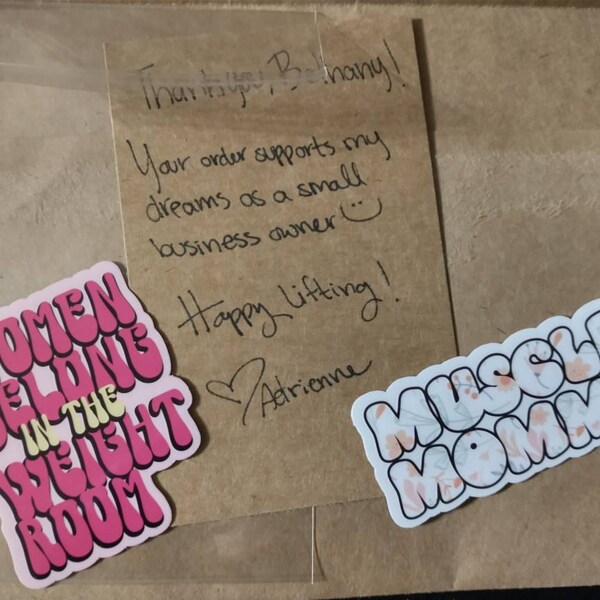 Thank you, Bethany!
Your order supports my
dreams as a small
business owner
Happy Lifting!
Adrienne
OMEN
BELONG
IN THE
WEIGHT
ROOM
MUSCLE
MOMM